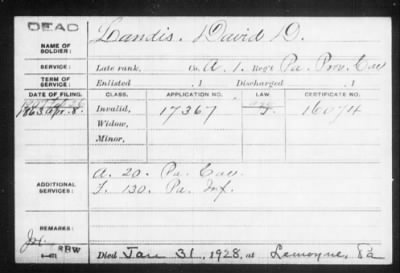 DEAD
NAME OF SOLDIER: Landis, David D.
SERVICE: Late rank, Co. A. 1. Reg't Pa. Prov. Cav
TERM OF SERVICE: Enlisted , 1 Discharged , 1
DATE OF FILING. CLASS. APPLICATION NO. LAW. CERTIFICATE NO.
1863 Apr. 8. Invalid, 17367 16074
Widow,
Minor,
ADDITIONAL SERVICES: A. 20. Pa. Cav.
F. 130. Pa. Inf.
REMARKS:
RBW
Died Jan 31, 1928, at Lemoyne, Pa